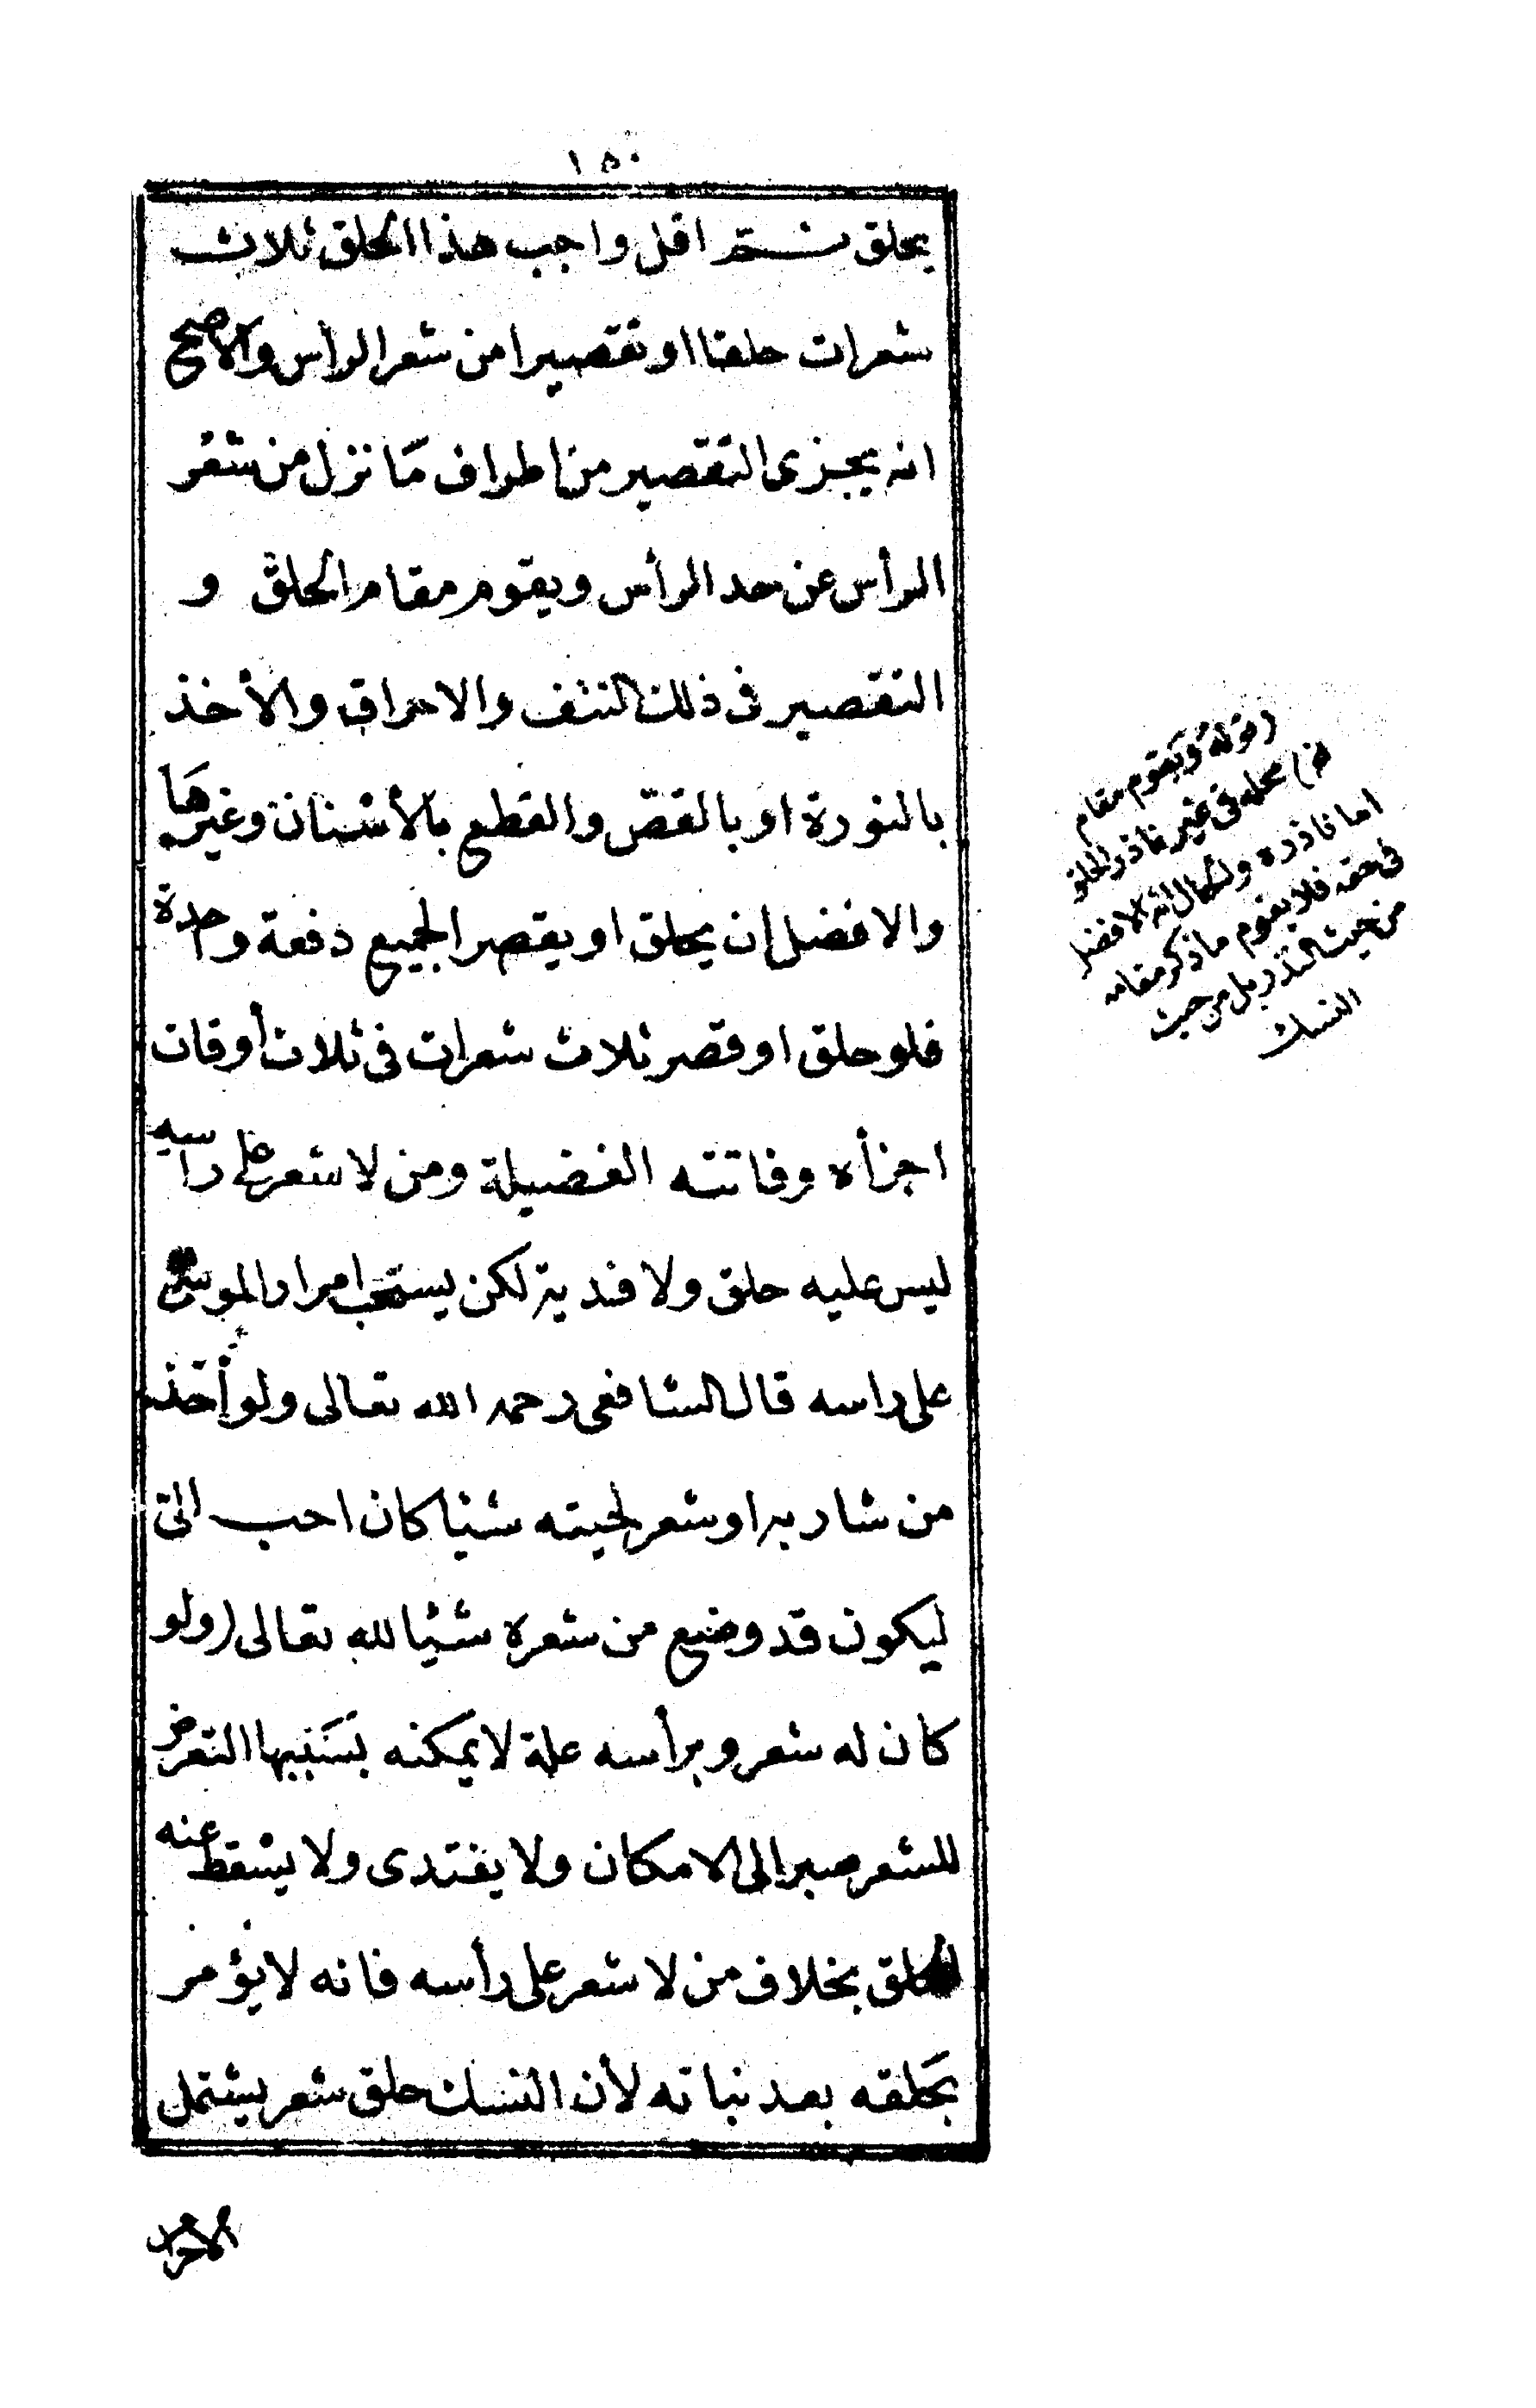 ١٥٠
يحلق ثم اقل واجب هذا الحلق ثلاث
شعرات حلقا او تقصيرا من شعر الرأس والاصح
انه يجزى التقصير من اطراف مَا نزل من شعر
الرأس عن حد الرأس ويقوم مقام الحلق و
التقصير فى ذلك النتف والاحراق والأخذ
بالنورة او بالقصّ والقطع بالأسْنان وغيرهَا
والافضل ان يحلق او يقصر الجميع دفعة واحدة
فلو حلق او قصر ثلاث شعرات فى ثلاث أوقات
اجزأه وفاتته الفضيلة ومن لا شعر على راسه
ليس عليه حلق ولا فدية لكن يستحب امرار الموسى
على راسه قال الشافعى رحمه الله تعالى ولو أخذ
من شاربه او شعر لحيته شيئا كان احب الىّ
ليكون قد وضع من شعره شيئا لله تعالى (ولو
كان له شعر وبرأسه علة لا يمكنه بسَببها التعرض
للشعر صبر الى الامكان ولا يفتدى ولا يسْقط عنه
الحلق بخلاف من لا شعر على رأسه فانه لا يؤمر
بحَلقه بعد نباته لأن النسك حلق شعر يشتمل
(قوله ويقوم مقام
الخ) محله فى غير ناذر الحلق
اما ناذره ولشمال انه الافضل
فى حقه فلا يقوم ما ذكر مقامه
من حيث النذر بل من حيث
النسك
الاحرام